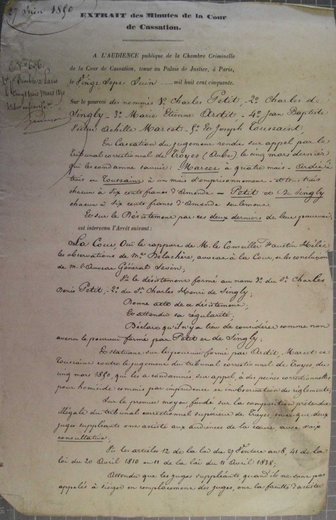 27 Juin 1850
EXTRAIT des Minutes de la Cour
de Cassation.
A L'AUDIENCE publique de la Chambre Criminelle
de la Cour de Cassation, tenue au Palais de Justice, à Paris,
le Vingt Sept Juin mil huit cent cinquante.
Sur le pourvoi des nommés 1º Charles Petit, 2º Charles de
Singly, 3º Marie Etienne Ardit, 4º Jean Baptiste
Achille Marcot, 5º Joseph Toussaint,
En Cassation du jugement rendu sur appel par le
tribunal correctionnel de Troyes (Aube) le cinq mars dernier
qui les condamne savoir: Marcot à quatre mois Ardit à
trois et Toussaint à un mois d'emprisonnement
chacun à six cents francs d'amende Petit et de Singly
chacun à six cents francs d'amende seulement
Et sur le Désistement par ces deux derniers de leur pourvoi
est intervenu l'Arrêt suivant:
La Cour, Oui le rapport de M. le Conseiller Faustin Hélie
les observations de Me avocat à la Cour, et les conclusions
de M. l'Avocat Général
Vu le désistement formé au nom de Charles
Petit, 2º de Charles Henri de Singly,
Donne acte de ce désistement
Et attendu sa régularité,
Déclare qu'il n'y a lieu de considérer comme non
avenu le pourvoi formé par Petit et de Singly.
Et statuant sur le pourvoi formé par Ardit, Marcot et
Toussaint contre le jugement du tribunal correctionnel de Troyes du
cinq mars 1850 qui les a condamnés sur appel à des peines correctionnelles
pour homicide commis par imprudence ou inobservation des règlements
Sur le premier moyen fondé sur la composition prétendue
illégale du tribunal correctionnel supérieur de Troyes, en ce que deux
juges suppléants ont assisté aux audiences de la cause, avec voix
consultative.
Vu les articles 12 de la loi du 27 Ventôse an 8, 41 de la
loi du 20 Avril 1810 et de la loi du 11 Avril 1838,
Attendu que les juges suppléants quand ils ne sont pas
appelés à siéger en remplacement des juges, ont la faculté d'assister